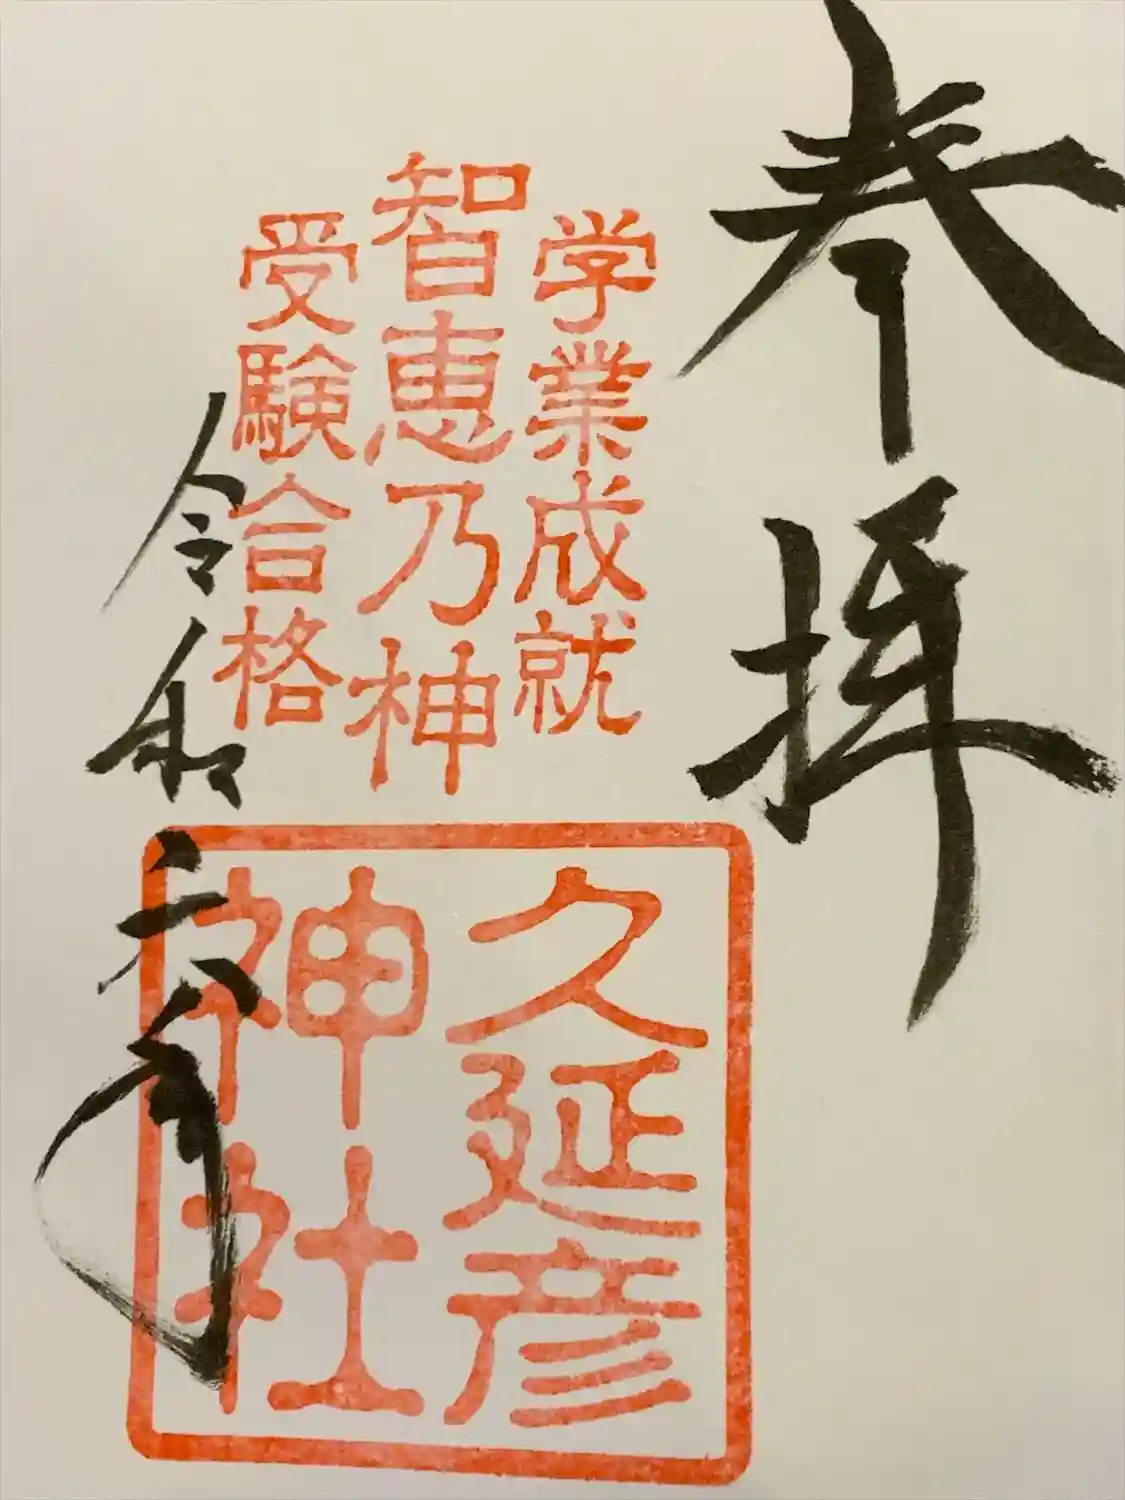 奉拝
学業成就
智恵乃神
受験合格
久延彦
神社
令和六年